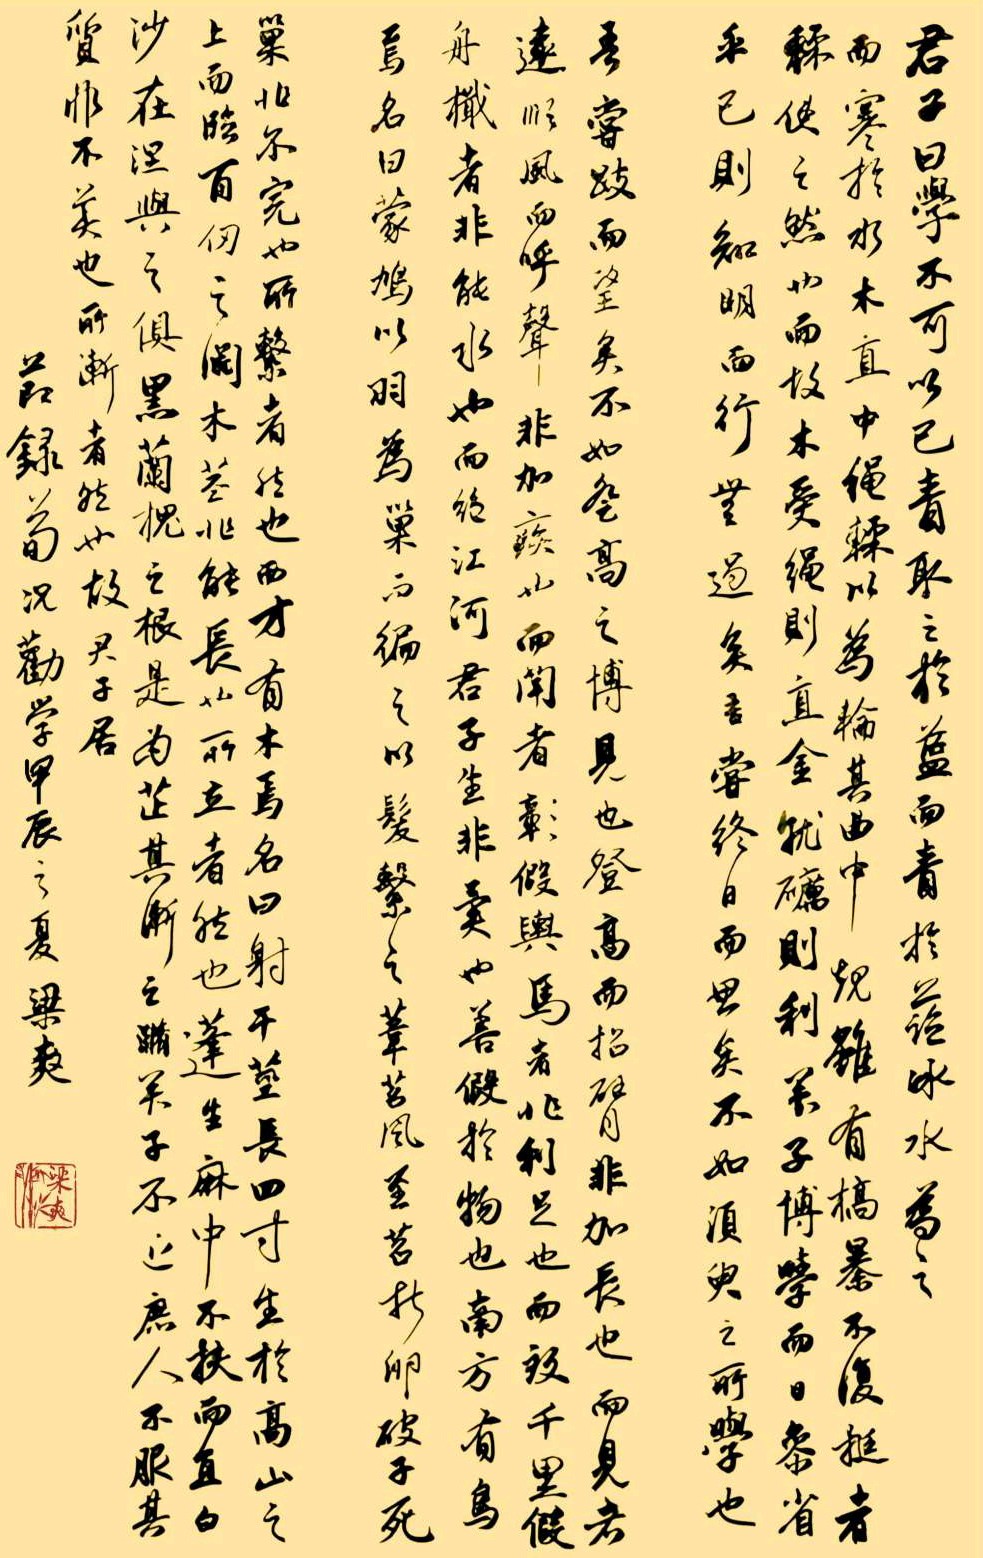 君子曰學不可以已青取之於藍而青於藍冰水為之
而寒於水木直中繩輮以為輪其曲中規雖有槁暴不復挺者
輮使之然也而故木受繩則直金就礪則利君子博學而日參省
乎己則知明而行無過矣吾嘗終日而思矣不如須臾之所學也
吾嘗跂而望矣不如登高之博見也登高而招臂非加長也而見者
遠順風而呼聲非加疾也而聞者彰假輿馬者非利足也而致千里假
舟檝者非能水也而絕江河君子生非異也善假於物也南方有鳥
焉名曰蒙鳩以羽為巢而編之以髮繫之葦苕風至苕折卵破子死
巢非不完也所繫者然也西方有木焉名曰射干莖長四寸生於高山之
上而臨百仞之淵木莖非能長也所立者然也蓬生麻中不扶而直白
沙在涅與之俱黑蘭槐之根是為芷其漸之滫君子不近庶人不服其
質非不美也所漸者然也故君子居
節錄荀況勸学甲辰之夏梁爽
梁爽